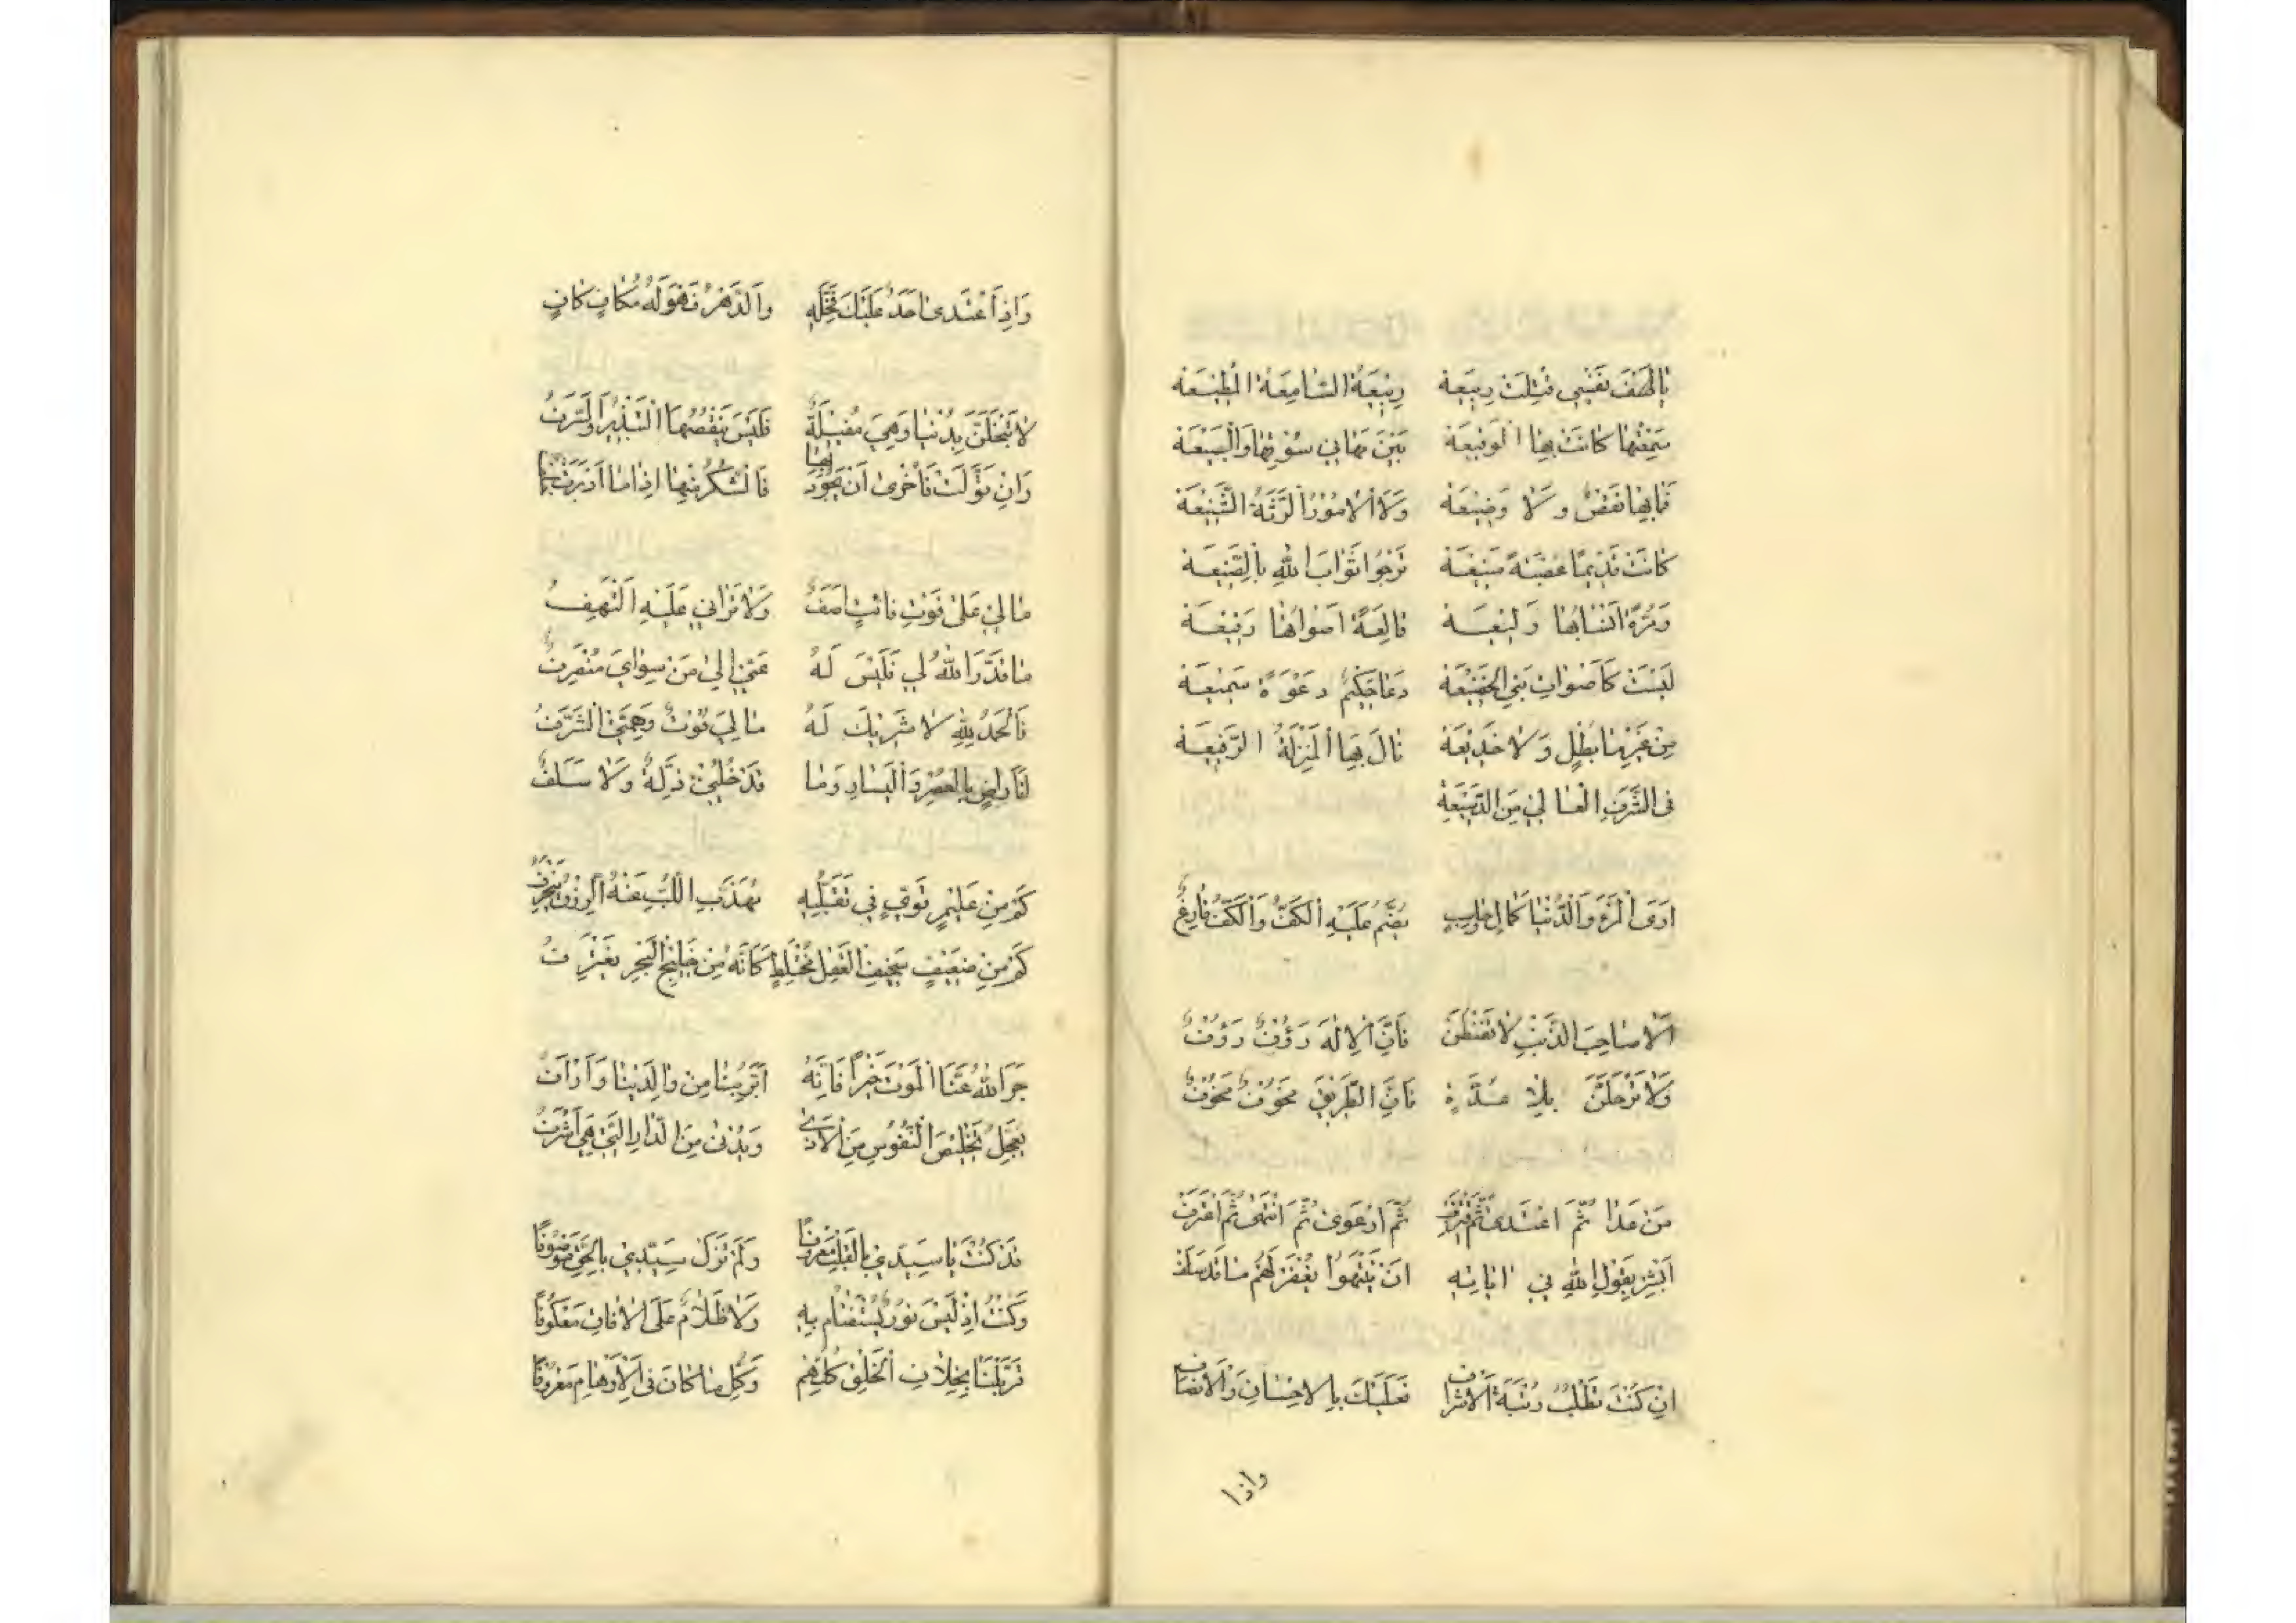 يا لهف نفسي قتلت ربيعه ربيعة السّامعة المطيعه
سمعتها كانت بها الوقيعه بين محاني سوقها والبيعه
فما بها نقض ولا وضيعه ولا الامور الرّثّة الشّنيعه
كانت قديما عصبة منيعه ترجوا ثواب الله بالصّنيعه
ومرّة انسابها ولیعه قالعة اصواتها رفيعه
ليست كاصوات بني الخضيعه دعا حكيم دعوة سميعه
من غير ما بطل ولا خديعه نال بها المنزلة الرّفيعه
في الشّرف العالي من الدّسيعه
ارى المرء والدّنيا كمال وحاسب يضمّ عليه الكفّ والكفّ فارغ
الا صاحب الذّنب لا تقنطن فانّ الاله رؤف رؤف
ولا ترحلنّ بلا عدّة فانّ الطّريق مخوف مخوف
من عدا ثمّ اعتدى ثمّ اقترف ثمّ ارعوى ثمّ انتهى ثمّ اعترف
ابشر بقول الله في اياته ان ينتهوا يغفر لهم ما قد سلف
ان كنت تطلب رتبة الاشراف فعليك بالاحسان والانصاف
واذا
واذا اعتدى احد عليك فخلّه والدّهر فهو له مكاف كاف
لا تبخلنّ بدنيا وهي مقبلة فليس ينقصها التّبذير والسّرف
وان تولّت فاحرى ان تجود بها فالشّكر منها اذا ما ادبرت خلف
ما لي على فوت فائت اسف ولا تراني عليه التهف
ما قدّر الله لي فليس له عنّي الى من سواي منصرف
فالحمد لله لا شريك له ما لي قوت وهمّتي الشّرف
انا راض بالعسر واليسار وما تدخلني ذلّة ولا سلف
كم من عليم قويّ في تقلّبه مهذّب اللّبّ عنه الرّزق ينحرف
كم من ضعيف سخيف العقل مختلط كانّه من خليج البحر يغترف
جزا الله عنّا الموت خيرا فانّه ابرّ بنا من والدينا وارأف
يعجّل تخليص النّفوس من الاذى ويدني من الدّار الّتي هي اشرف
قد كنت يا سيّدي بالقلب معروفا ولم تزل سيّدي بالحقّ موصوفا
وكنت اذ ليس نور يستضاء به ولا ظلام على الافاق معكوفا
فربّنا بخلاف الخلق كلّهم وكلّ ما كان في الاوهام معروفا